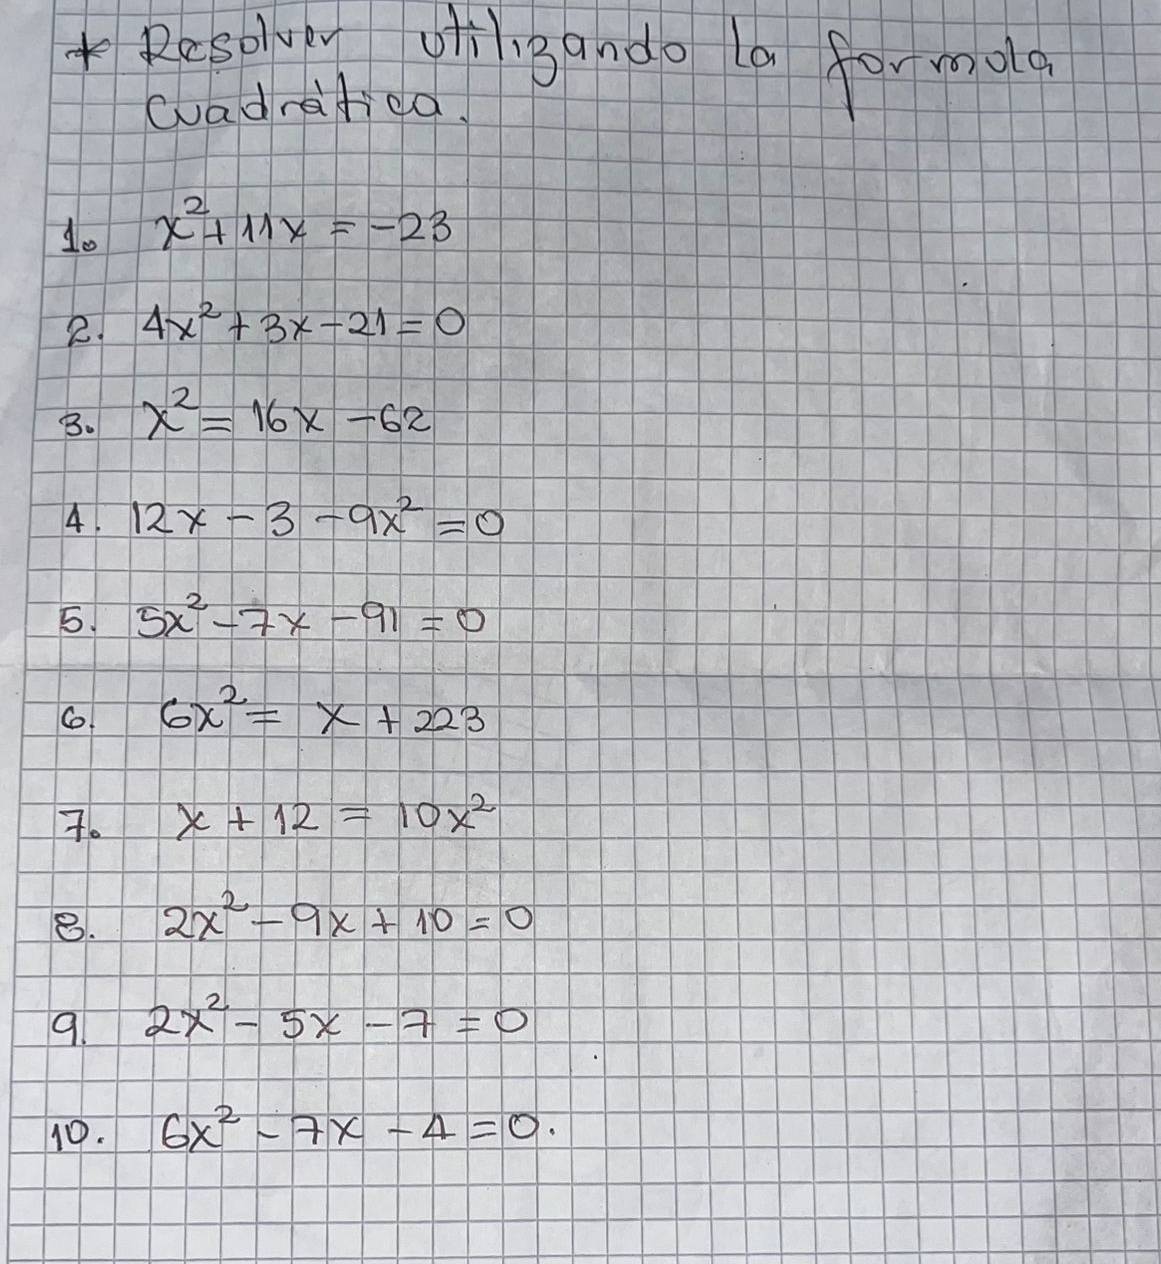 * Resolver utilizando la formula
cuadrática.
1. x²+11x = -23
2. 4x² +3x-21=0
3. x² = 16x -62
4. 12x - 3 -9x² =0
5. 5x² -7x -91 =0
6. 6x² = x +223
7. x + 12 = 10x²
8. 2x² - 9x + 10 = 0
9. 2x² - 5x - 7 = 0
10. 6x² - 7x - 4 = 0.